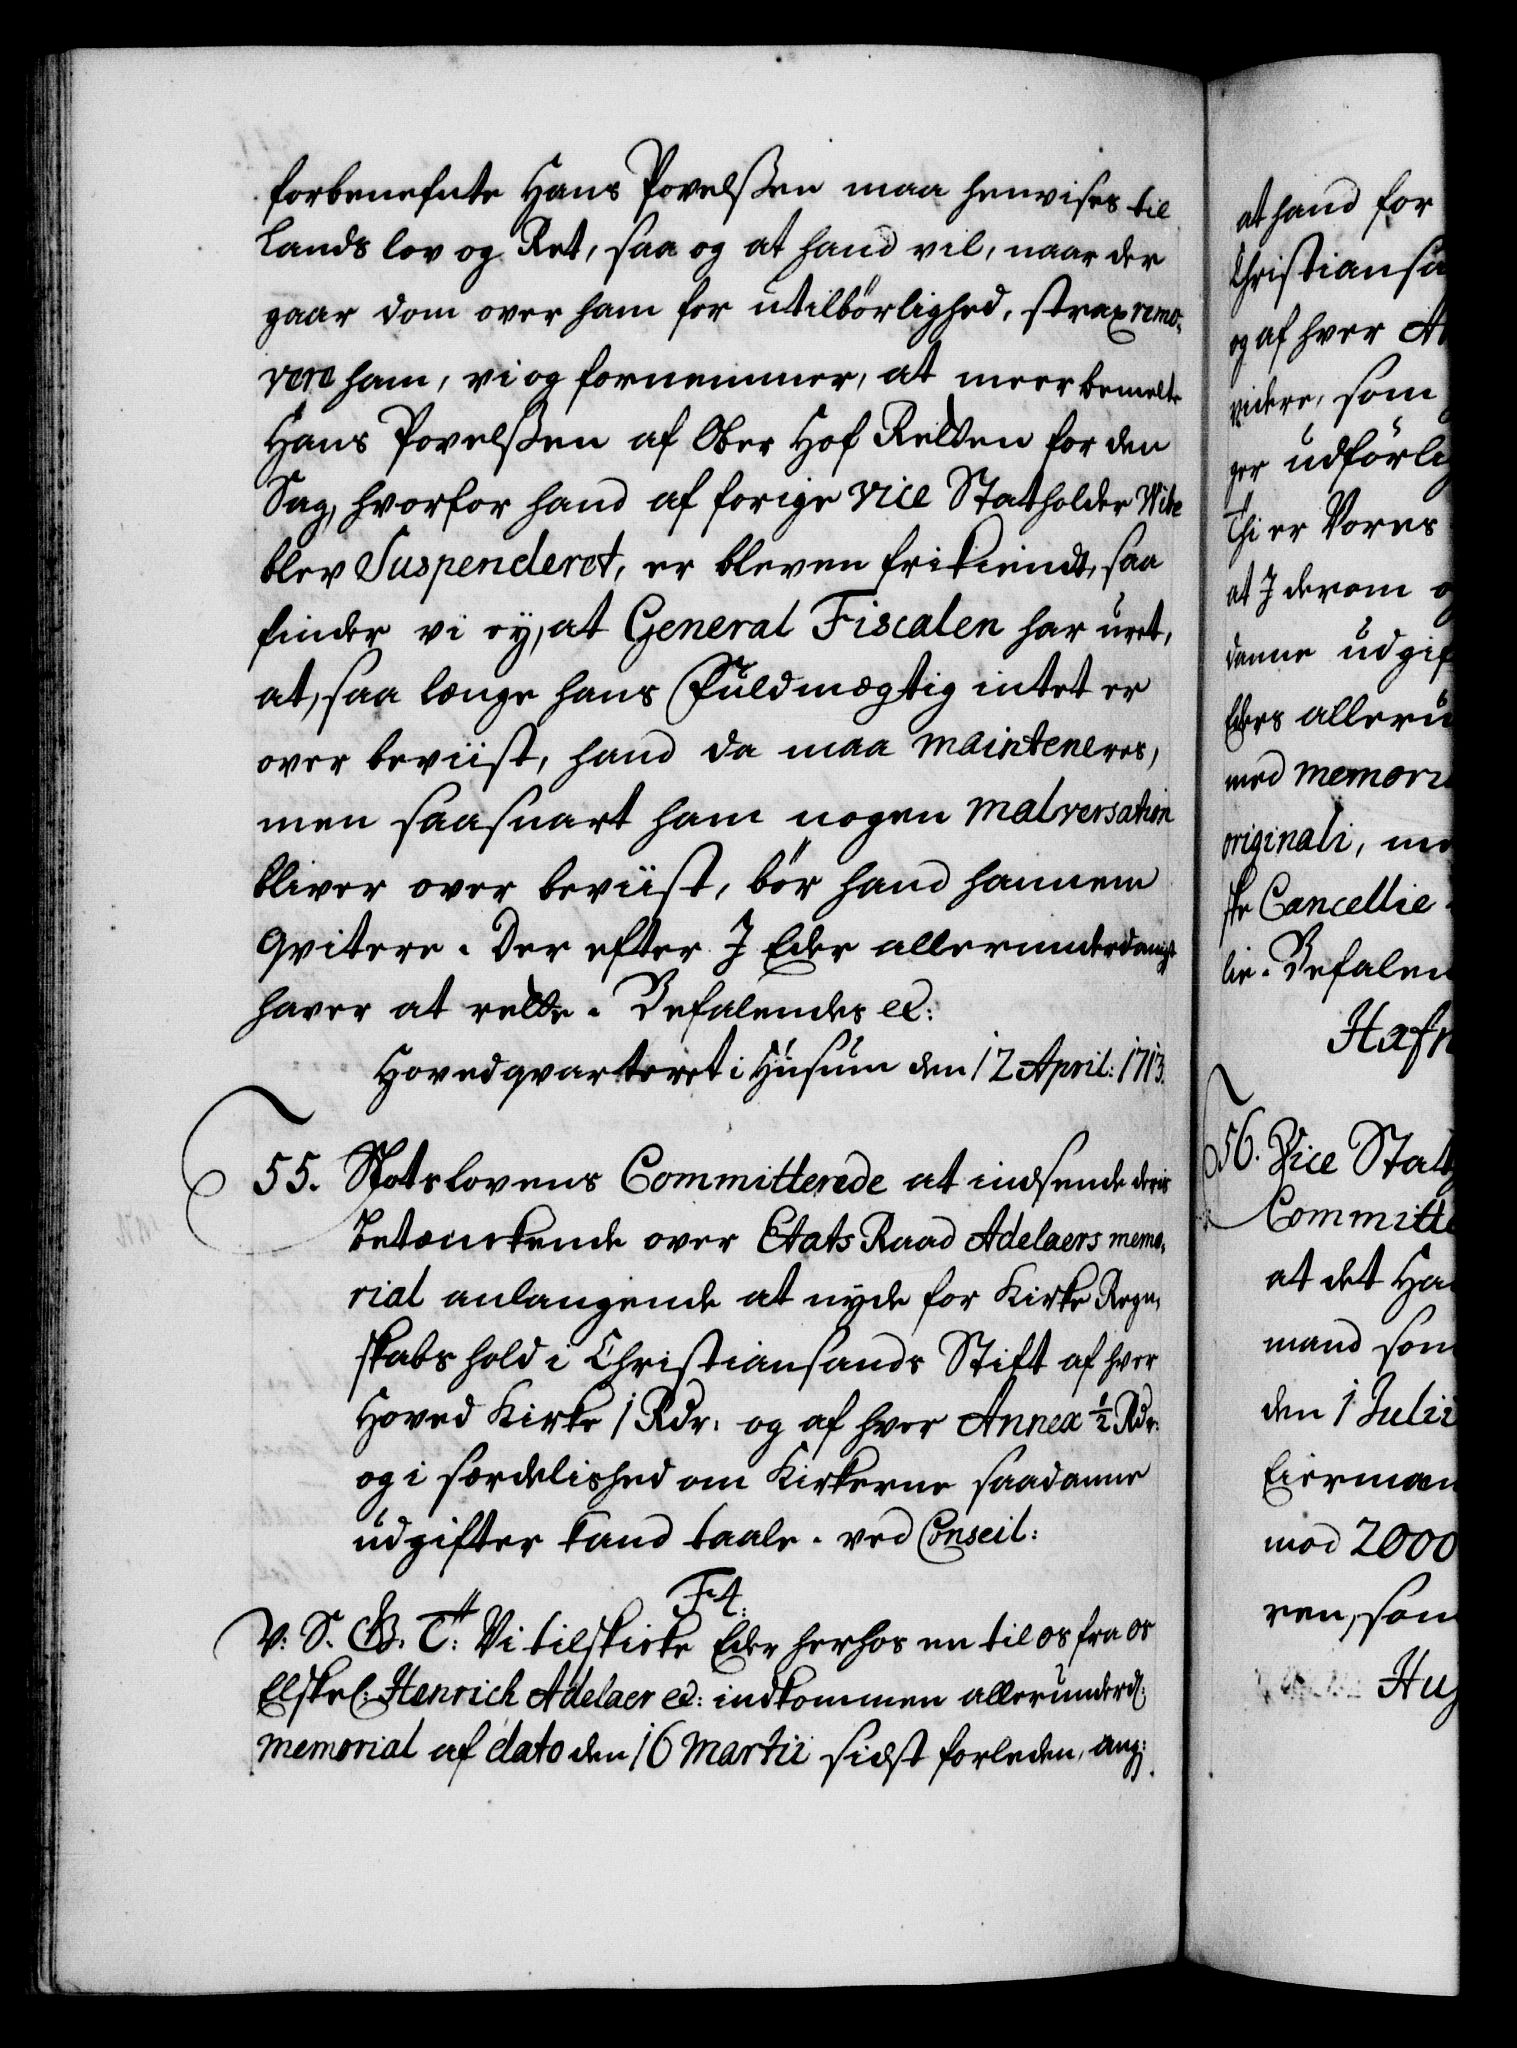 forbenefnte Hans Povelßen maa henvises til
Lands lov og Ret, saa og at hand vil, naar der
gaar dom over ham for utilbörlighed, strax remo-
vere ham, vi og fornemmer, at meerbemelte
Hans Povelßen af Ober Hof Retten for den
Sag, hvorfor hand af forige Vice Statholder Wibe
blev Suspenderet, er bleven frikiendt, saa
finder vi ey, at General Fiscalen har uret,
at, saa længe hans Fuldmægtig intet er
over beviist, hand da maa mainteneres,
men saasnart ham nogen malversation
bliver over beviist, bör hand hannem
qvitere. Der efter I Eder allerunderdanigst
haver at rette. Befalendes etc:
Hovedqvarteret i Husum den 12 April: 1713.
55. Slotslovens Committerede at indsende deris
Betænckende over Etats Raad Adelaers memo-
rial anlangende at nyde for Kirke Regn-
skabs hold i Christiansands Stift af hver
Hoved Kirke 1 Rdr: og af hver Annex ½ Rdr:
og i særdelished om Kirkerne saadanne
udgifter kand taale. ved Conseil:
F4.
V: S. G. T: Vi tilskicke Eder herhos en til os fra os
Elskel: Henrich Adelaer etc: indkommen allerunderd:
memorial af dato den 16 Martii sidst forleden, ang:
at hand for
Christiansa
og af hver An
videre, som
ger udförlig
Thi er Vores
at I derom o
danne udgif
Eders alleru
med memoria
originali, me
ske Cancellie
lie. Befalen
Hafn
56. Vice Stath
Committe
at det Ha
mand som
den 1 Julii
Eierman
mod 2000
ren, som
Hu